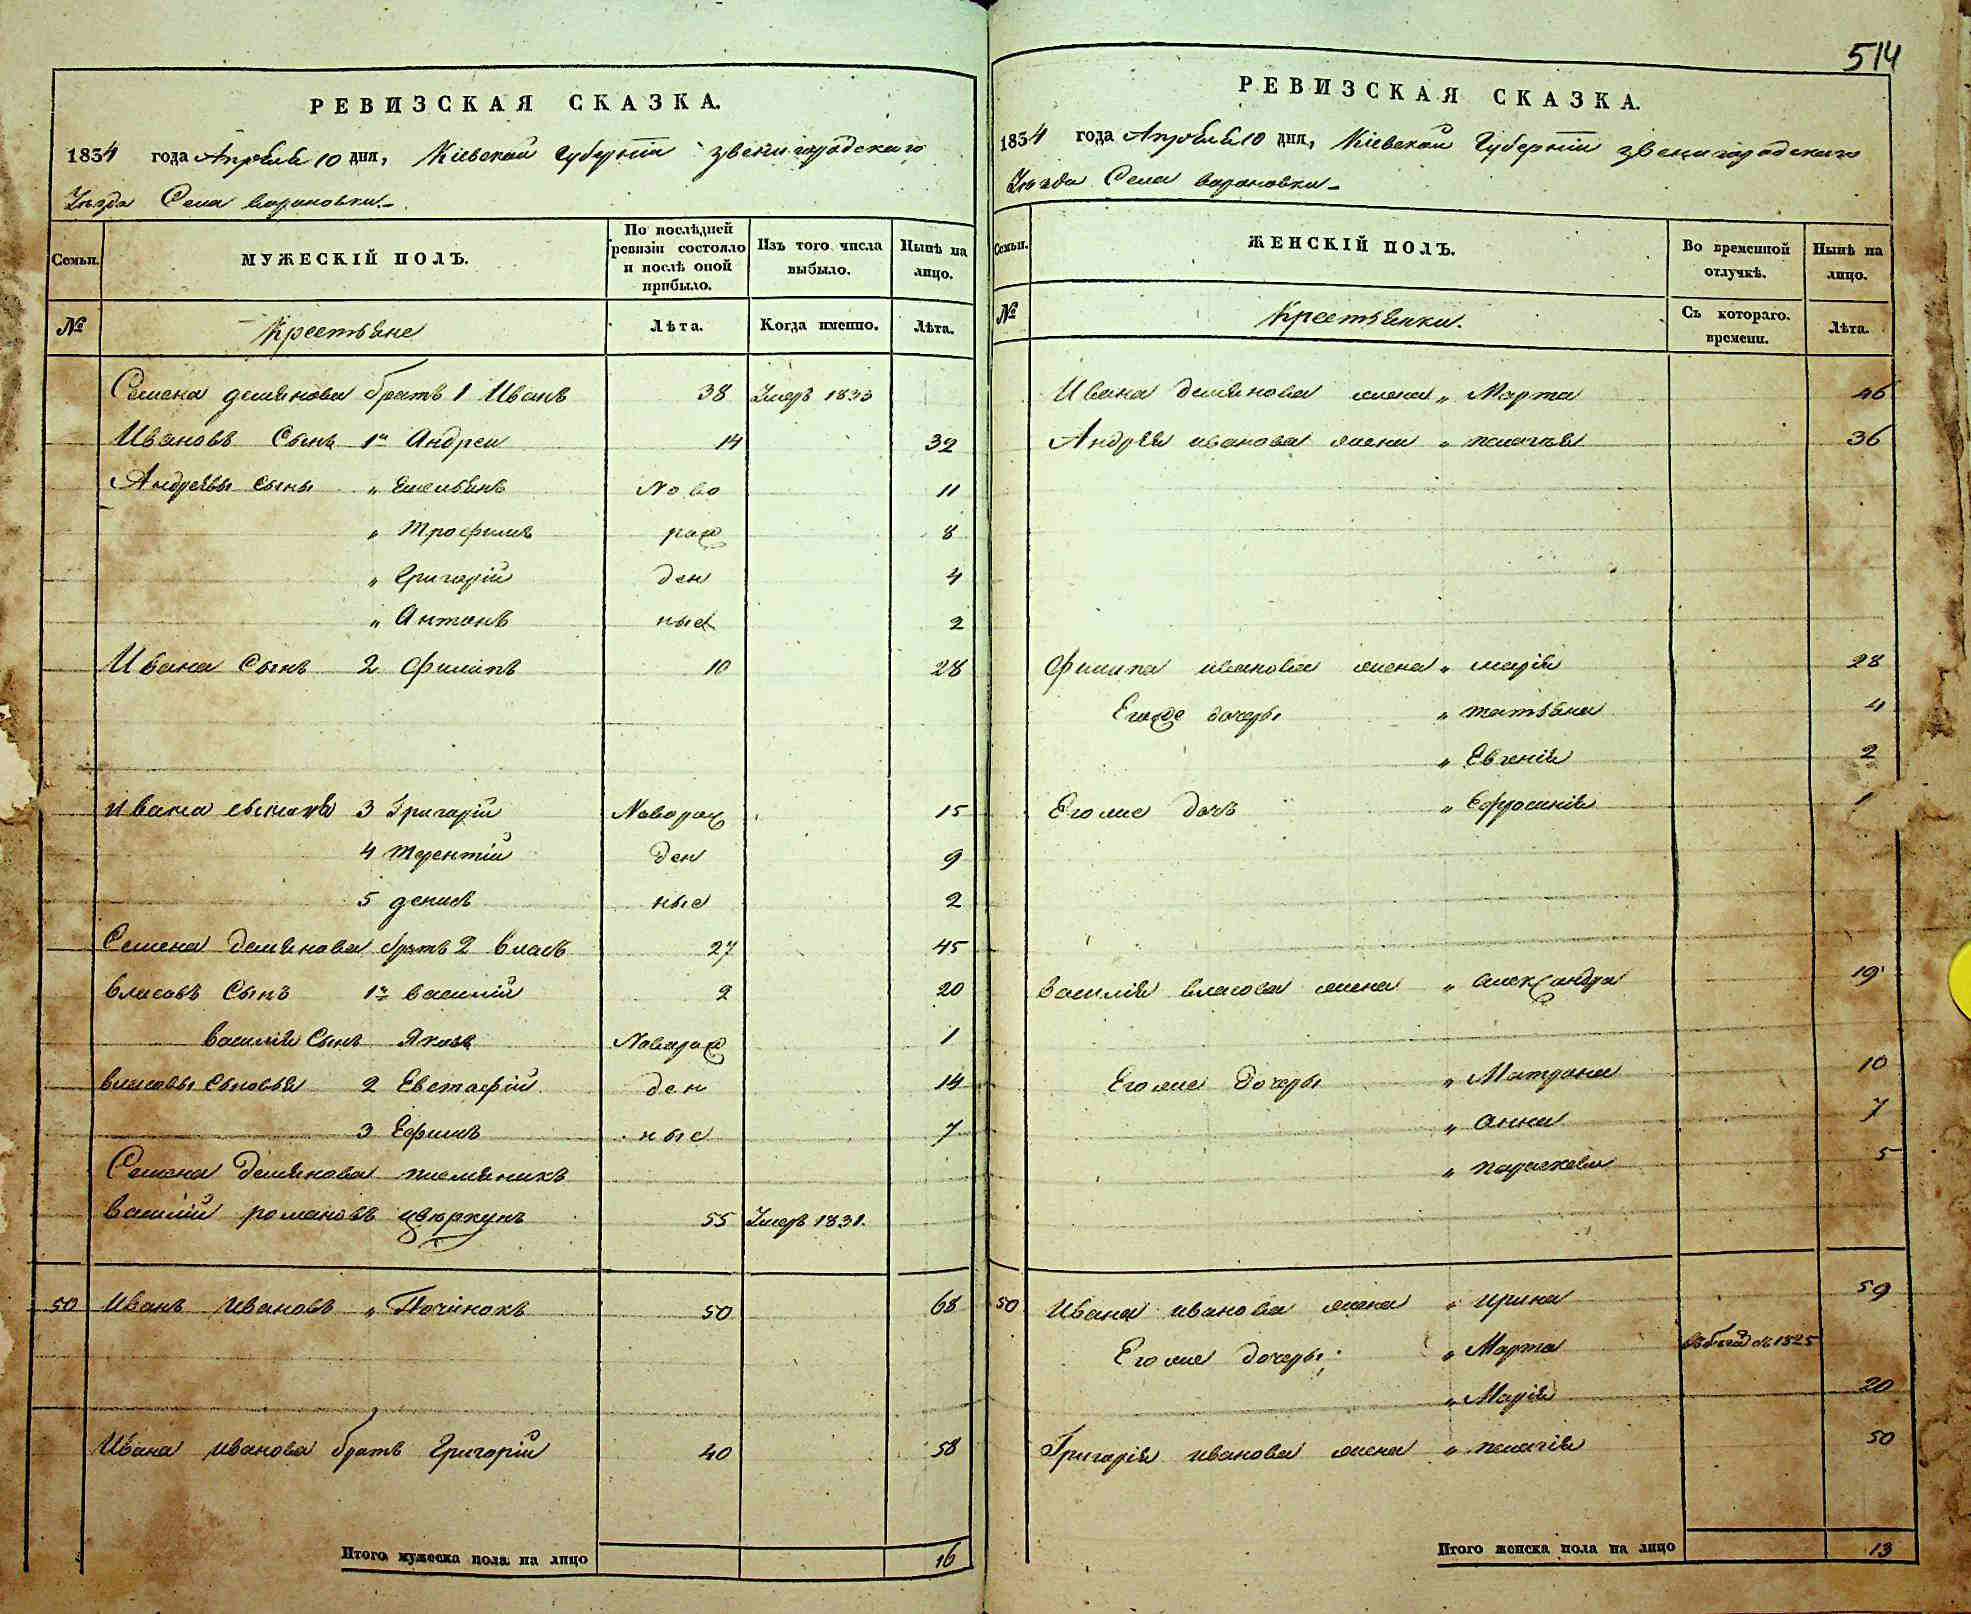 514
РЕВИЗСКАЯ СКАЗКА.
1834 года Апрѣля 10 дня, Кіевской Губерніи Звенигородскаго
Уѣзда Села
Семьи. МУЖЕСКІЙ ПОЛЪ. По послѣдней ревизіи состояло и послѣ оной прибыло. Изъ того числа выбыло. Нынѣ на лицо.
№ Крестьяне Лѣта. Когда именно. Лѣта.
Семена демянова братъ 1 Иванъ 38 Умеръ 1833
Ивановъ Сынъ 1й Андреи 14 32
Андреевы сыны „ Емельянъ Ново 11
„ Трофимъ рож 8
„ Григорій ден 4
„ Антонъ ные 2
Ивана Сынъ 2 Филипъ 10 28
Ивана 3 Григорій Саворож 15
4 Терентій ден 9
5 денисъ ные 2
Семена демянова братъ 2 Власъ 27 45
Власовъ Сынъ 1й Василій 2 20
Василія Сынъ Яковъ Новорож 1
Власовы Сыновья 2 Евстафій ден 14
3 Ефимъ ные 7
Семена демянова племяникъ
Василій романовъ цвюркунъ 55 Умеръ 1831.
50 Иванъ Ивановъ „ Починокъ 50 68
Ивана Иванова братъ Григорій 40 58
Итого мужеска пола на лицо 16
РЕВИЗСКАЯ СКАЗКА.
1834 года Апрѣля 10 дня, Кіевской Губерніи Звенигородскаго
Уѣзда Села
Семьи. ЖЕНСКІЙ ПОЛЪ. Во временной отлучкѣ. Нынѣ на лицо.
№ Крестьянки. Съ котораго. времени. Лѣта.
Ивана демянова жена „ Марта 46
Андрея иванова жена „ пелагея 36
Филипа иванова жена „ марія 28
Егоже дочеры „ татьяна 4
„ Евгенія 2
Егоже дочь „ Ефросинія 1
Василія власова жена „ Александра 19
Егоже дочеры „ Матрона 10
„ анна 7
„ параскева 5
50 Ивана иванова жена „ ирина 59
Егоже дочеры „ Марта въ бѣгахъ съ 1825
„ Марія 20
Григорія иванова жена „ пелагія 50
Итого женска пола на лицо 13